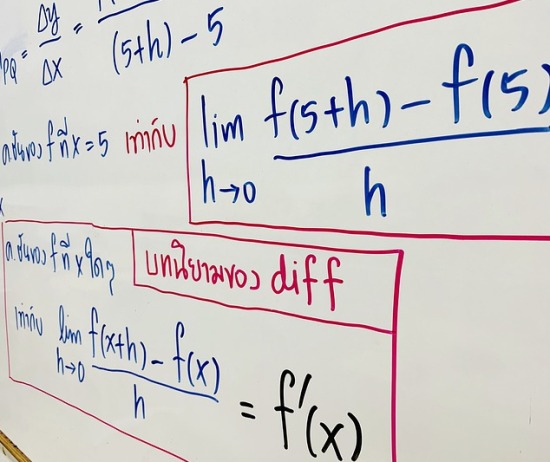 PQ = Δy/Δx = /(5+h) - 5
ค.ชันของ f ที่ x = 5 เท่ากับ lim h→0 f(5+h) - f(5)/h
ค.ชันของ f ที่ x ใดๆ
บทนิยามของ diff
เท่ากับ lim h→0 f(x+h) - f(x)/h = f'(x)